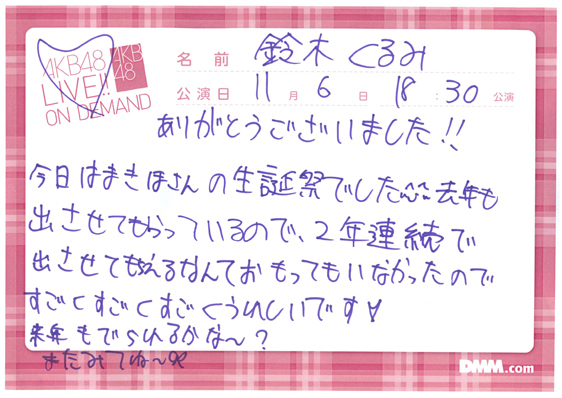 AKB48
LIVE!!
ON DEMAND
AKB
48
名前 鈴木くるみ
公演日 11月6日 18:30 公演
ありがとうございました!!
今日はまきほさんの生誕祭でした^^去年も
出させてもらっているので、2年連続で
出させてもらえるなんておもってもいなかったので
すごくすごくすごくうれしいです
来年もでられるかな〜?
またみてね〜
DMM.com